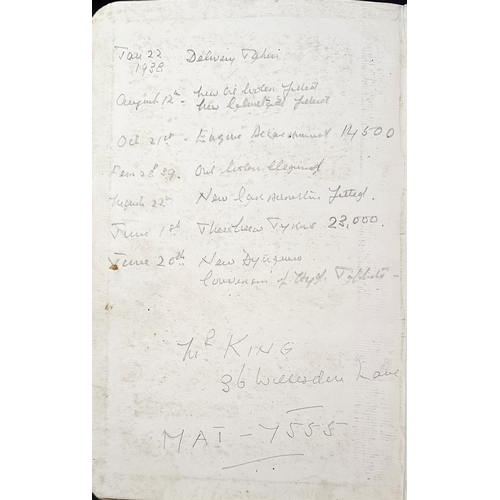 Jan 22 1938 Delivery Taken
August 12th - New Oil Cooler fitted
New fitted
Oct 21st - Engine Decarbonised 14500
Feb 28 39. Oil Cooler Cleaned
August 22nd New fitted.
June 18th Three New Tyres 23,000.
June 20th New Dynamo
Conversion of Tappets -
Mr KING
36 Willesden Lane
MAI - 7555